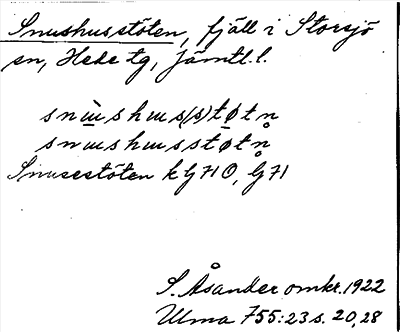 Snushusstöten, fjäll i Storsjö
sn, Hede tg, Jämtl. l.
snùshus(s)tøtn̥
snushusstøtn̥
Snusestöten k G71O, G71
S. Åsander omkr. 1922
Ulma 755:23 s. 20, 28